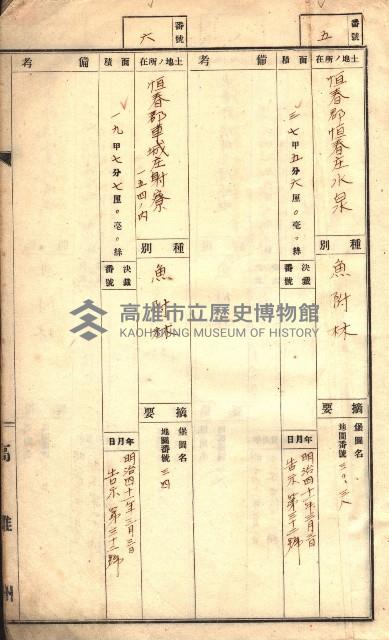 番號
五
土地ノ所在
恒春郡恒春庄水泉
種別
魚附林
摘要
堡圖名
地圖番號 三〇、三八
面積
三七甲五分六厘〇毫〇絲
決裁番號
年月日
明治四十一年三月三日
告示第三十三號
備考
番號
六
土地ノ所在
恒春郡車城庄射寮
一五四ノ內
種別
魚附林
摘要
堡圖名
地圖番號 三四
面積
一九甲七分七厘〇毫〇絲
決裁番號
年月日
明治四十一年三月三日
告示第三十三號
備考
高雄州
高雄市立歷史博物館
KAOHSIUNG MUSEUM OF HISTORY